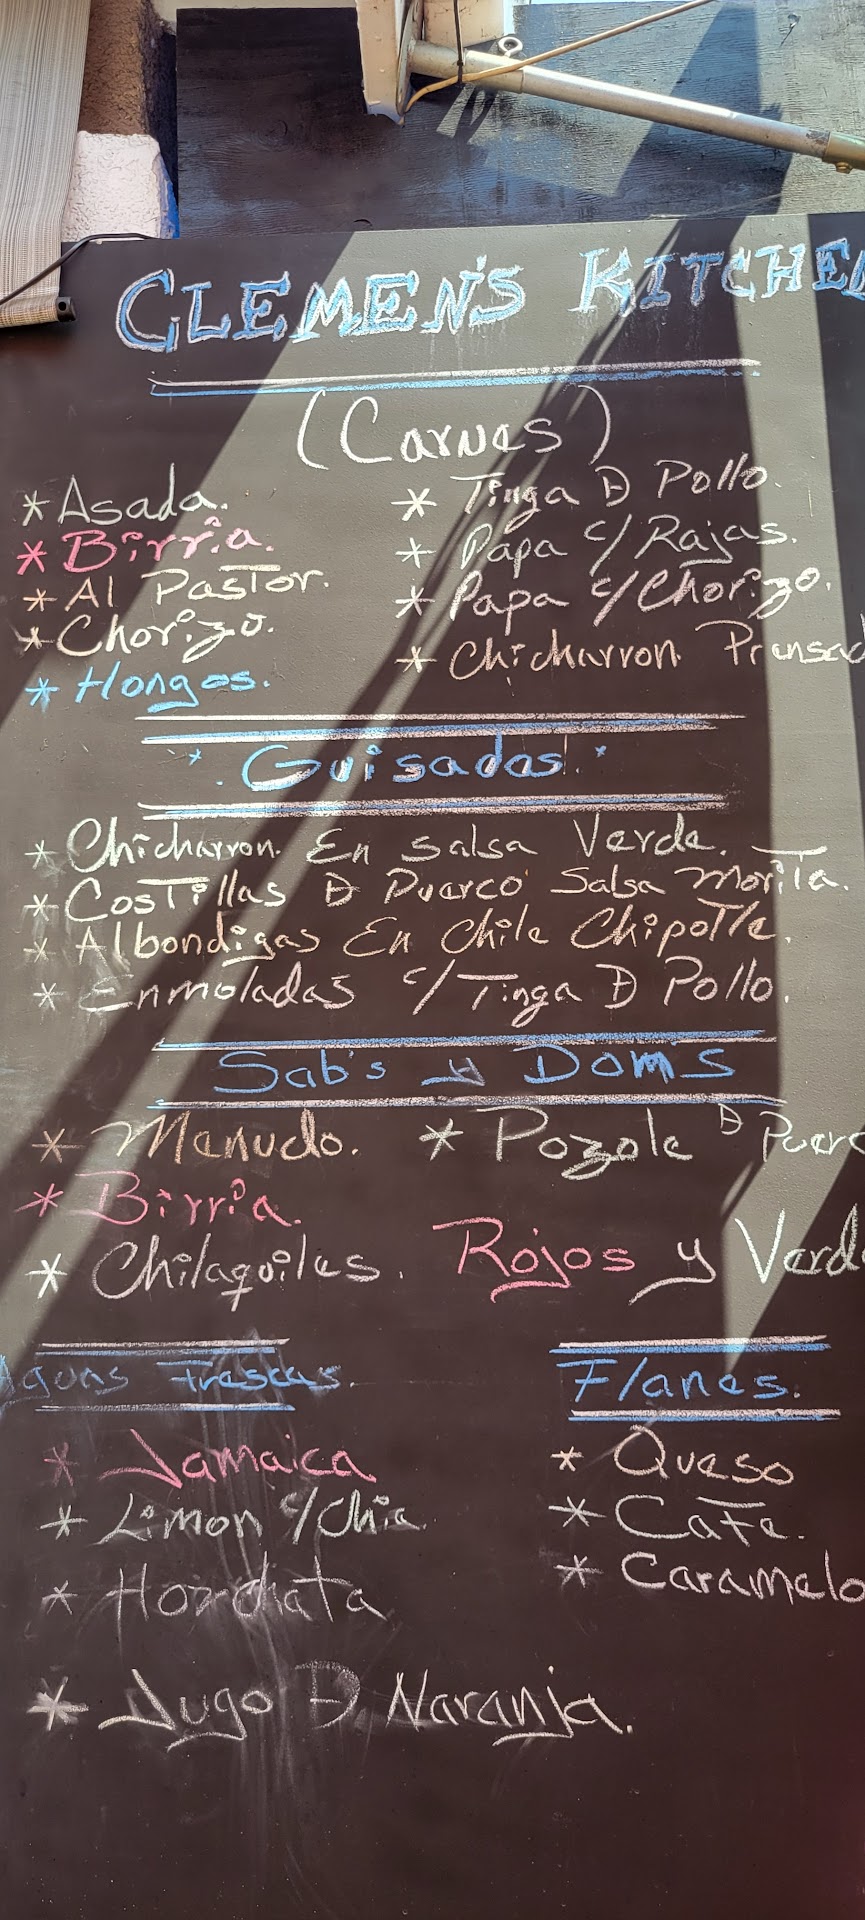 CLEMEN'S KITCHEN
(Carnes)
* Asada.
* Birria.
* Al Pastor.
* Chorizo.
* Hongos.
* Tinga D Pollo.
* Papa c/Rajas.
* Papa c/Chorizo.
* Chicharron Prensad
* Guisadas. *
* Chicharron En Salsa Verde.
* Costillas D Puerco Salsa Morita.
* Albondigas En Chile Chipotle.
* Enmoladas c/Tinga D Pollo.
Sab's y Dom's
* Menudo. * Pozole D Puerc
* Birria.
* Chilaquiles. Rojos y Verde
Aguas Frescas.
* Jamaica
* Limon c/Chia
* Horchata
* Jugo D Naranja.
Flanes.
* Queso
* Cafe.
* Caramelo